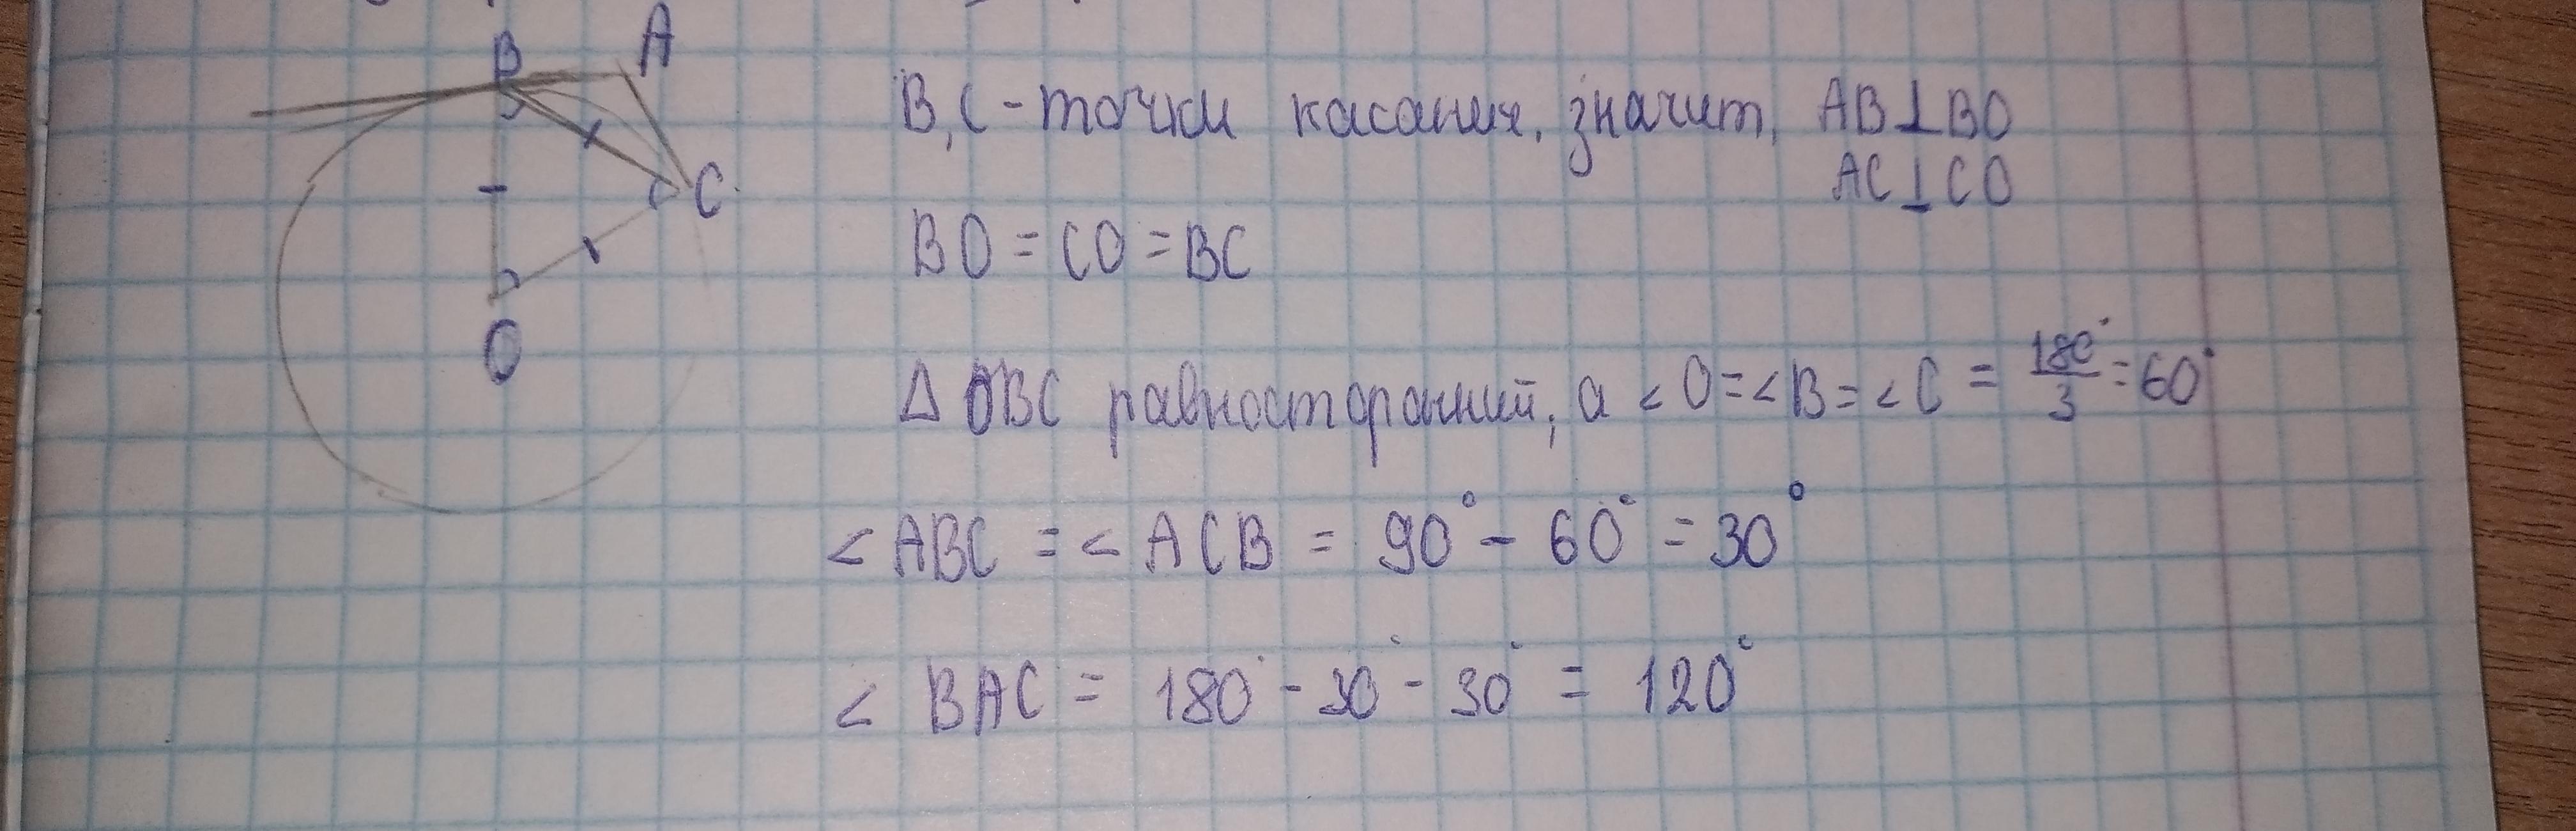 B
A
C
O
B, C - точки касания, значит, AB⊥BO
AC⊥CO
BO = CO = BC
Δ OBC равносторонний, а < O = < B = < C = 180°/3 = 60°
< ABC = < ACB = 90° - 60° = 30°
< BAC = 180° - 30° - 30° = 120°